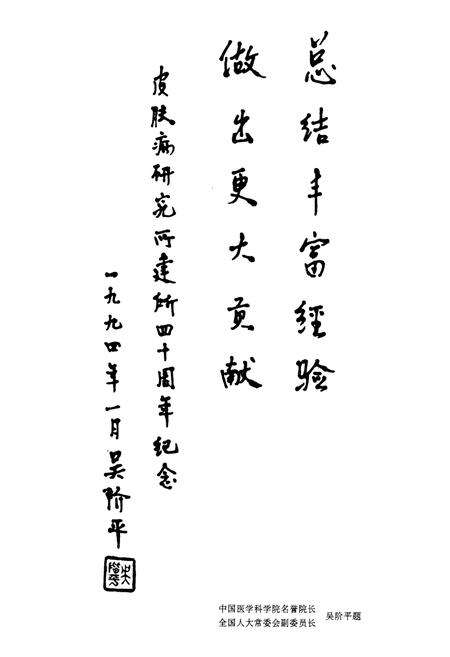 总结丰富经验
做出更大贡献
皮肤病研究所建所四十周年纪念
一九九四年一月吴阶平
中国医学科学院名誉院长
全国人大常委会副委员长
吴阶平题